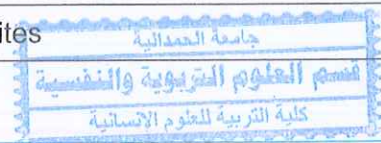 ites
جامعة الحمدانية
قسم العلوم التربوية والنفسية
كلية التربية للعلوم الانسانية